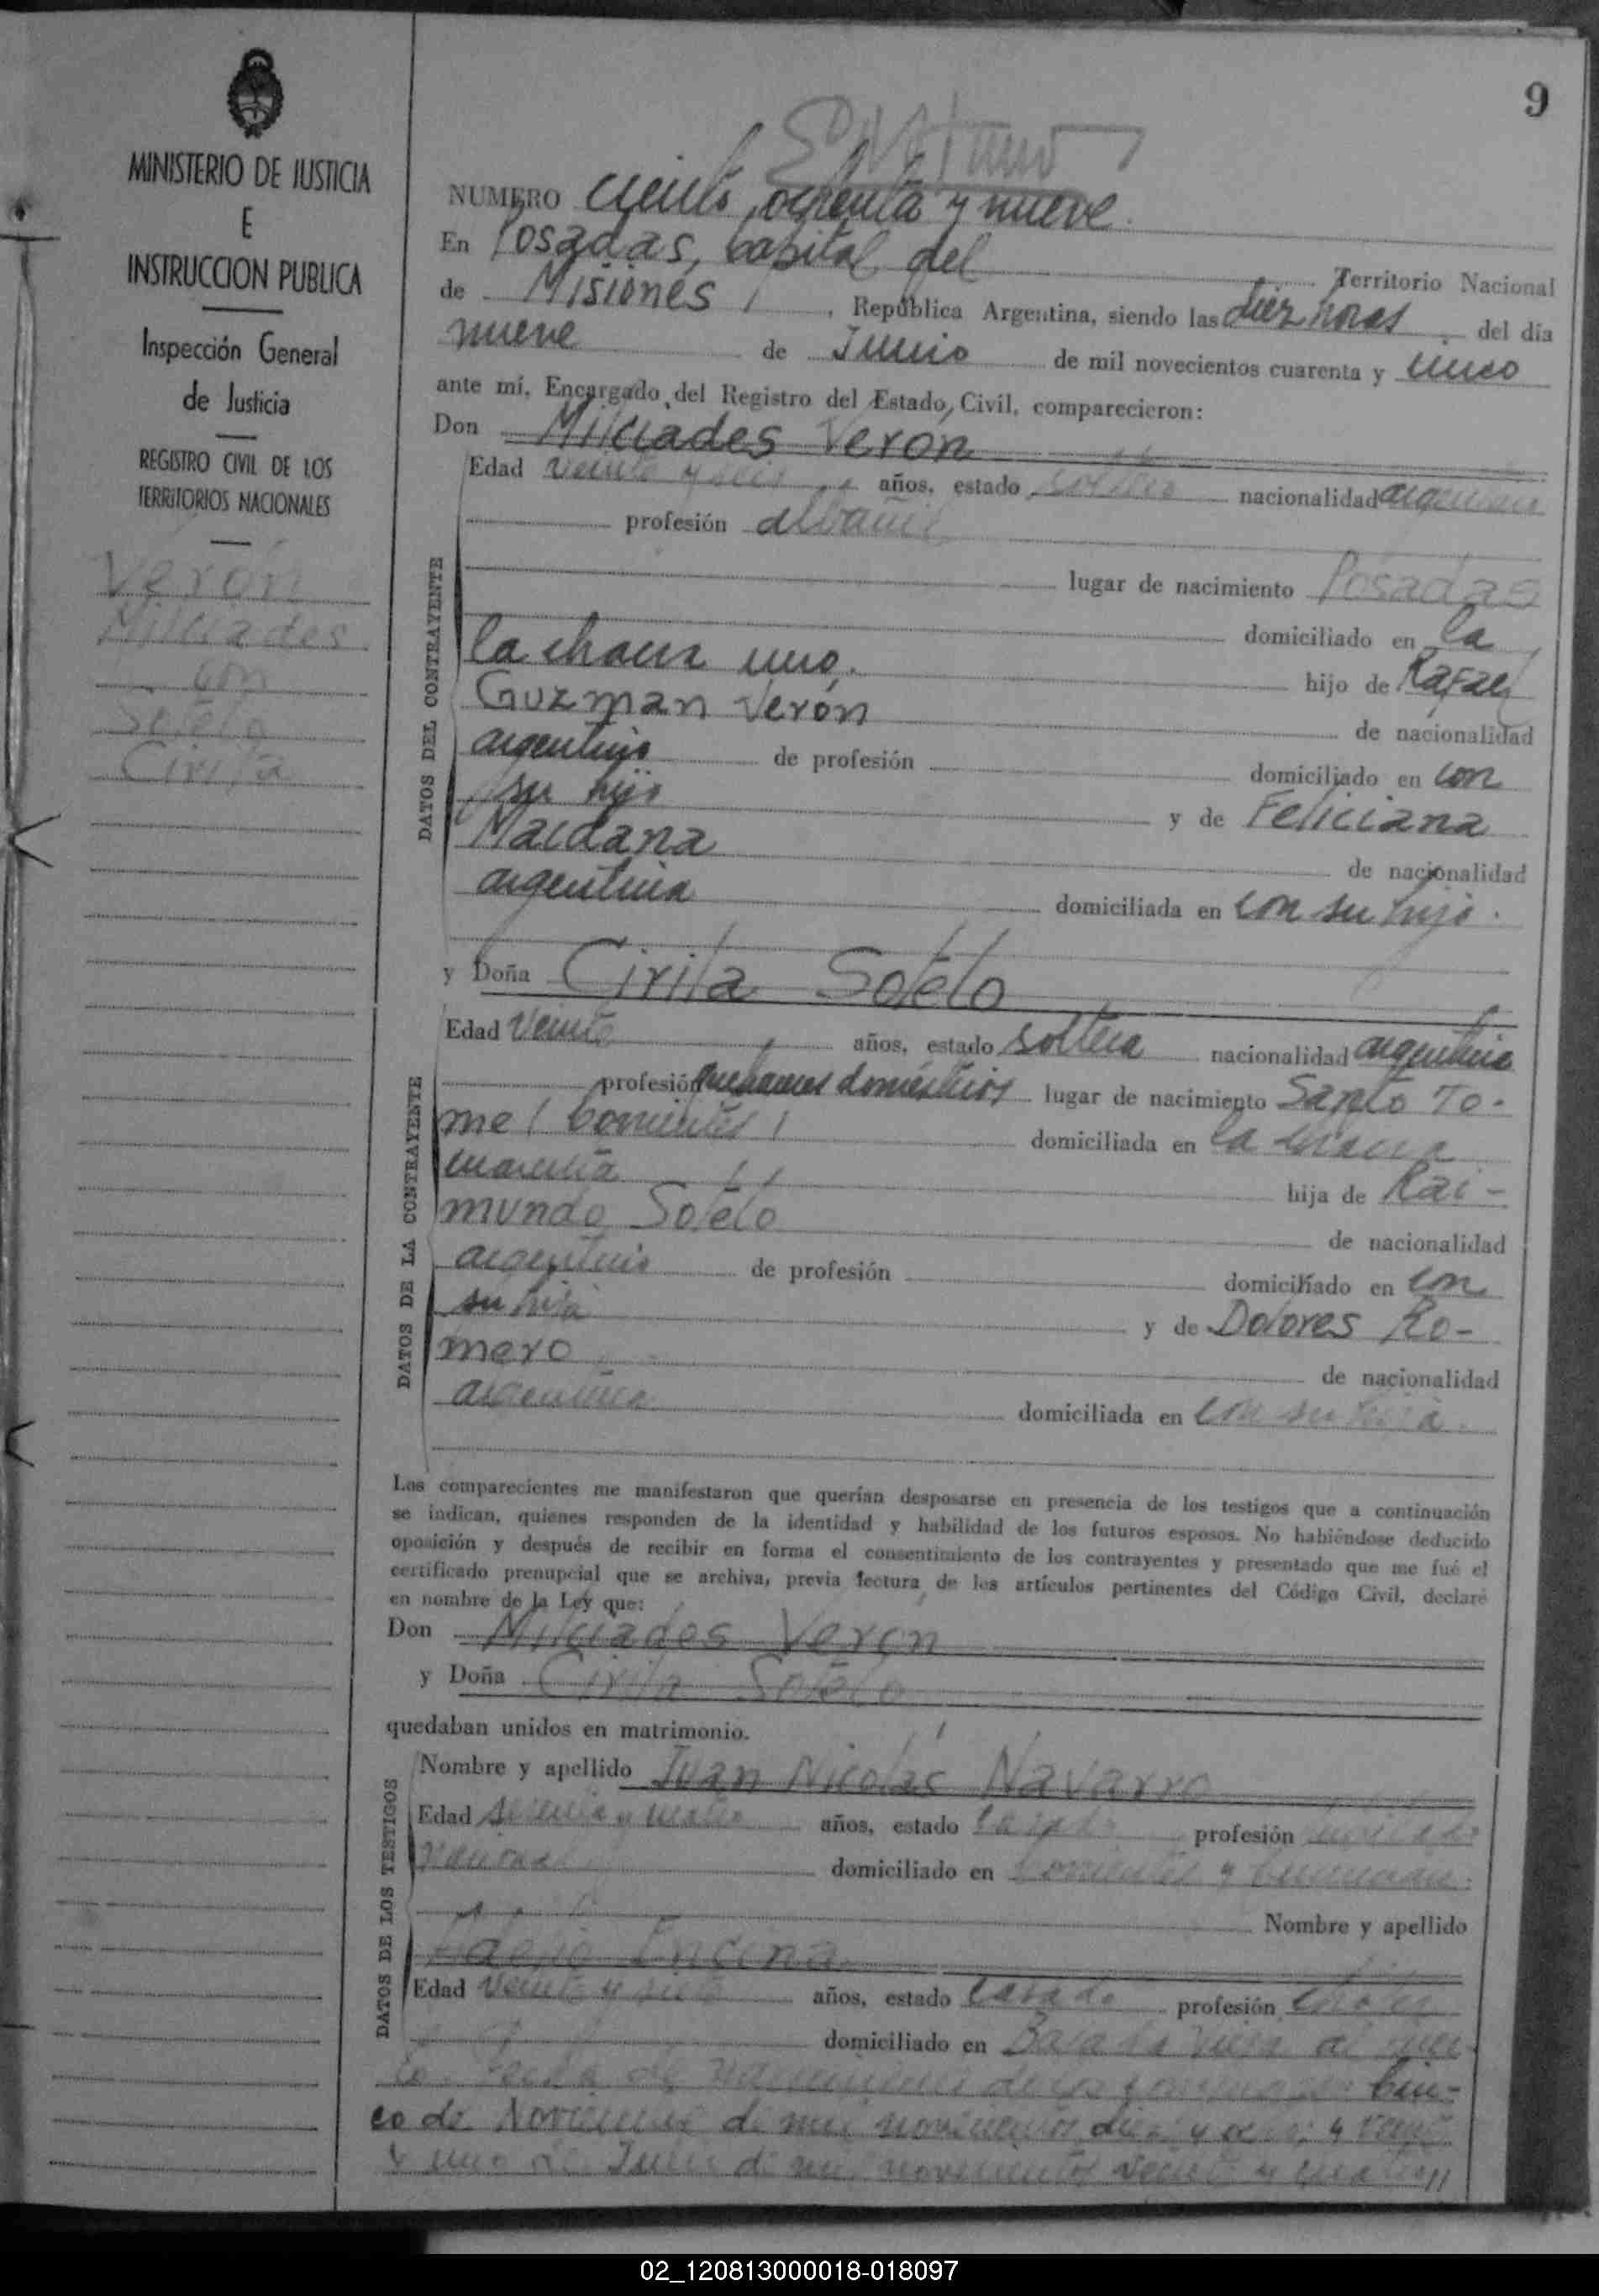 9
MINISTERIO DE JUSTICIA
E
INSTRUCCION PUBLICA
Inspección General
de Justicia
REGISTRO CIVIL DE LOS
TERRITORIOS NACIONALES
Verón
Milciades
con
Sotelo
Cirila
NUMERO ciento ochenta y nueve
En Posadas, capital del Territorio Nacional
de Misiones, República Argentina, siendo las diez horas del día
nueve de Junio de mil novecientos cuarenta y cinco
ante mí, Encargado del Registro del Estado Civil, comparecieron:
Don Milciades Verón
Edad veinte y seis años, estado soltero nacionalidad argentina
profesión albañil
lugar de nacimiento Posadas
domiciliado en la
la chacra uno. hijo de Rafael
Guzman Verón de nacionalidad
argentino de profesión domiciliado en con
su hijo y de Feliciana
Maidana de nacionalidad
argentina domiciliada en con su hijo.
DATOS DEL CONTRAYENTE
y Doña Cirila Sotelo
Edad veinte años, estado soltera nacionalidad argentina
profesión quehaceres domésticos lugar de nacimiento Santo To-
me (Corrientes) domiciliada en la chacra
cuarenta hija de Rai-
mundo Sotelo de nacionalidad
argentino de profesión domiciliado en con
su hija y de Dolores Ro-
mero de nacionalidad
argentina domiciliada en con su hija.
DATOS DE LA CONTRAYENTE
Los comparecientes me manifestaron que querían desposarse en presencia de los testigos que a continuación
se indican, quienes responden de la identidad y habilidad de los futuros esposos. No habiéndose deducido
oposición y después de recibir en forma el consentimiento de los contrayentes y presentado que me fué el
certificado prenupcial que se archiva, previa lectura de los artículos pertinentes del Código Civil, declaré
en nombre de la Ley que:
Don Milciades Verón
y Doña Cirila Sotelo
quedaban unidos en matrimonio.
Nombre y apellido Juan Nicolás Navarro
Edad años, estado casado profesión jubilado
nacional domiciliado en Corrientes y Tucuman.
Nombre y apellido
Encina
Edad veinte y siete años, estado casado profesión chofer
domiciliado en
DATOS DE LOS TESTIGOS
nacimiento de los Cin-
co de Noviembre de mil novecientos diez y ocho y veinte
y uno de Julio de mil novecientos veinte y cuatro
02_120813000018-018097